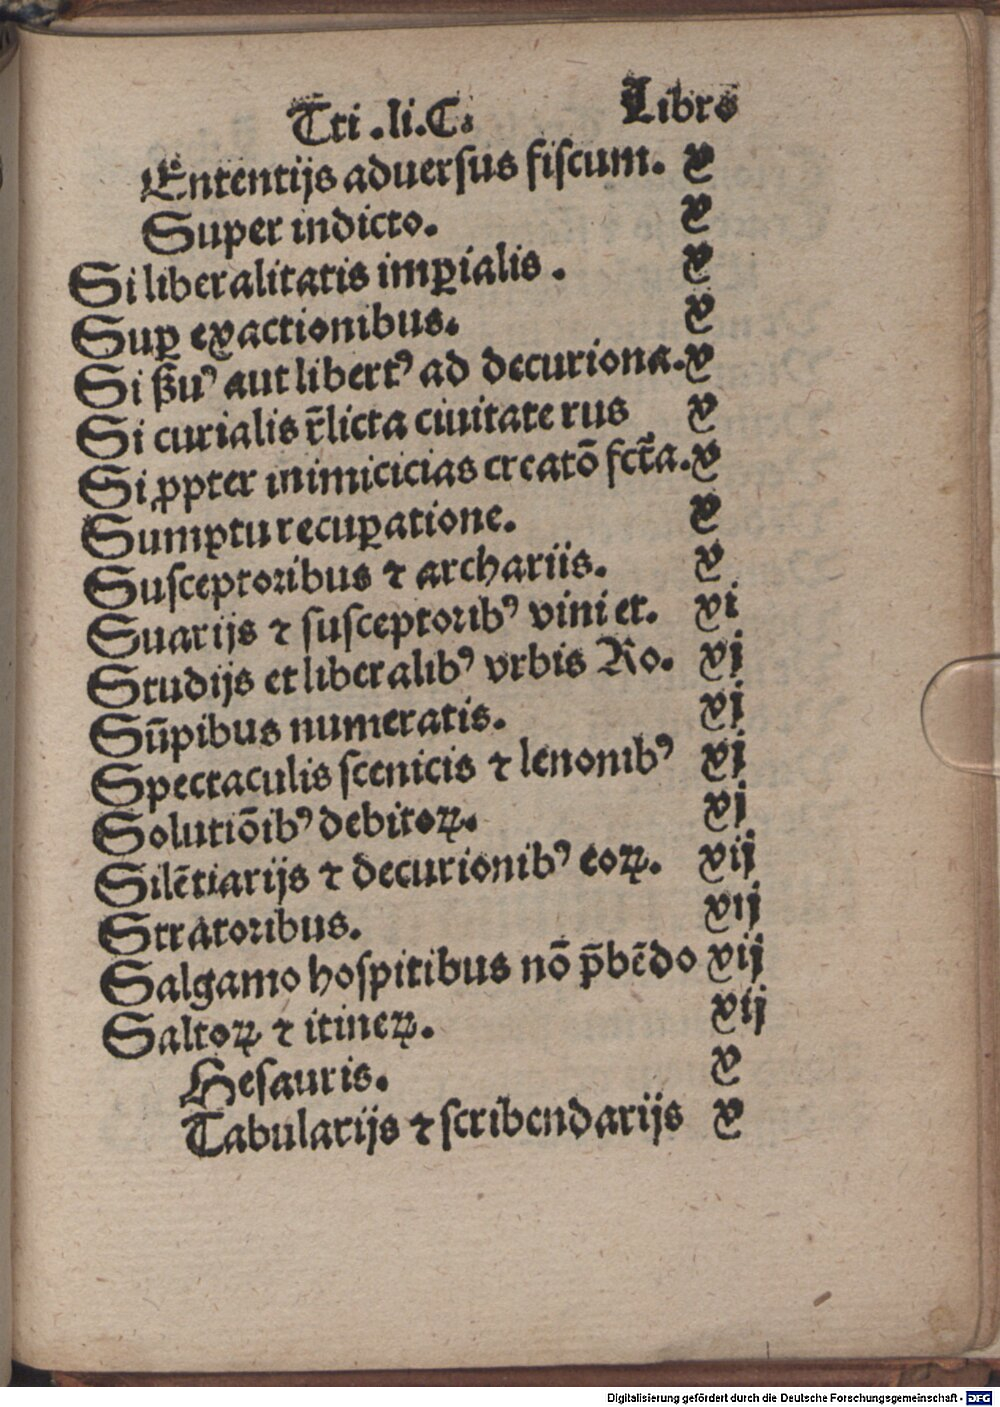 Tri .li.C. Libro
Ententijs aduersus fiscum. x
Super indicto. x
Si liberalitatis imꝑialis . x
Suꝑ exactionibus. x
Si ẞuꝰ aut libertꝰ ad decuriona. x
Si curialis r̃licta ciuitate rus x
Si ꝓpter inimicicias creatō fct̃a. x
Sumptu recuꝑatione. x
Susceptoribus ⁊ archariis. x
Suarijs ⁊ susceptoribꝰ vini et. xi
Studijs et liberalibꝰ vrbis Ro. xj
Sūpibus numeratis. xj
Spectaculis scenicis ⁊ lenonibꝰ xj
Solutiōibꝰ debitoꝝ. xj
Silẽtiarijs ⁊ decurionibꝰ eoꝝ. xij
Stratoribus. xij
Salgamo hospitibus nō p̄bẽdo xij
Saltoꝝ ⁊ itineꝝ. xij
Hesauris. x
Tabularijs ⁊ scribendarijs x
Digitalisierung gefördert durch die Deutsche Forschungsgemeinschaft - DFG